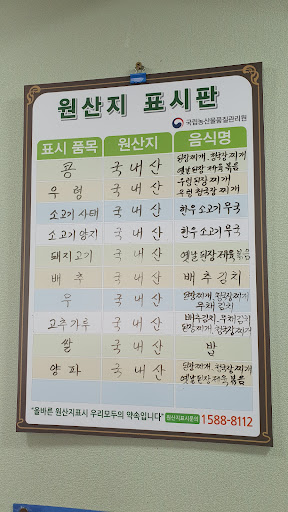 원산지 표시판
국립농산물품질관리원
표시 품목 원산지 음식명
콩 국내산 된장찌개, 청국장찌개
옛날된장제육볶음
우렁 국내산 우렁된장찌개
우렁청국장찌개
소고기사태 국내산 한우소고기무국
소고기양지 국내산 한우소고기무국
돼지고기 국내산 옛날된장제육볶음
배추 국내산 배추김치
무 국내산 된장찌개, 청국장찌개
무채김치
고추가루 국내산 배추김치, 무채김치
된장찌개, 청국장찌개
쌀 국내산 밥
양파 국내산 된장찌개, 청국장찌개
옛날된장제육볶음
"올바른 원산지표시 우리모두의 약속입니다" 원산지표시문의 1588-8112